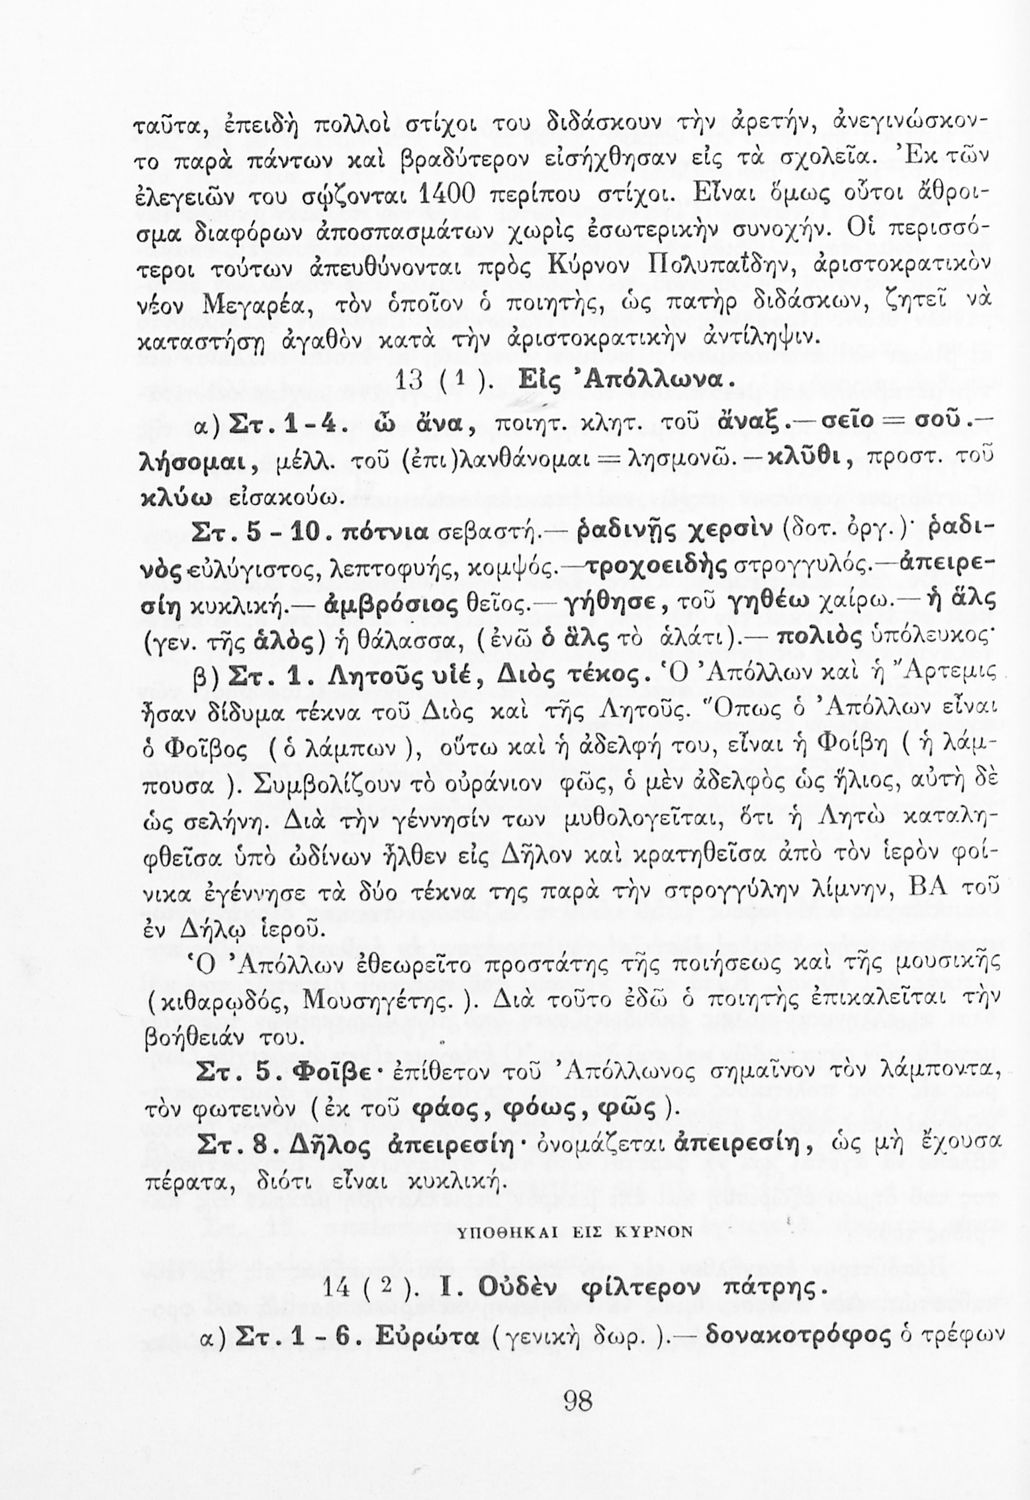 ταῦτα, ἐπειδὴ πολλοὶ στίχοι του διδάσκουν τὴν ἀρετήν, ἀνεγινώσκον-
το παρὰ πάντων καὶ βραδύτερον εἰσήχθησαν εἰς τὰ σχολεῖα. Ἐκ τῶν
ἐλεγειῶν του σῴζονται 1400 περίπου στίχοι. Εἶναι ὅμως οὗτοι ἄθροι-
σμα διαφόρων ἀποσπασμάτων χωρὶς ἐσωτερικὴν συνοχήν. Οἱ περισσό-
τεροι τούτων ἀπευθύνονται πρὸς Κύρνον Πολυπαΐδην, ἀριστοκρατικὸν
νέον Μεγαρέα, τὸν ὁποῖον ὁ ποιητής, ὡς πατὴρ διδάσκων, ζητεῖ νὰ
καταστήσῃ ἀγαθὸν κατὰ τὴν ἀριστοκρατικὴν ἀντίληψιν.
13 (1). Εἰς Ἀπόλλωνα.
α) Στ. 1-4. ὦ ἄνα, ποιητ. κλητ. τοῦ ἄναξ.— σεῖο = σοῦ.—
λήσομαι, μέλλ. τοῦ (ἐπι)λανθάνομαι = λησμονῶ. — κλῦθι, προστ. τοῦ
κλύω εἰσακούω.
Στ. 5 - 10. πότνια σεβαστή.— ῥαδινῇς χερσὶν (δοτ. ὀργ.)· ῥαδι-
νὸς εὐλύγιστος, λεπτοφυής, κομψός.—τροχοειδὴς στρογγυλός.—ἀπειρε-
σίη κυκλική.— ἀμβρόσιος θεῖος.— γήθησε, τοῦ γηθέω χαίρω.— ἡ ἅλς
(γεν. τῆς ἁλὸς) ἡ θάλασσα, (ἐνῶ ὁ ἅλς τὸ ἁλάτι).— πολιὸς ὑπόλευκος·
β) Στ. 1. Λητοῦς υἱέ, Διὸς τέκος. Ὁ Ἀπόλλων καὶ ἡ Ἄρτεμις
ἦσαν δίδυμα τέκνα τοῦ Διὸς καὶ τῆς Λητοῦς. Ὅπως ὁ Ἀπόλλων εἶναι
ὁ Φοῖβος (ὁ λάμπων), οὕτω καὶ ἡ ἀδελφή του, εἶναι ἡ Φοίβη (ἡ λάμ-
πουσα). Συμβολίζουν τὸ οὐράνιον φῶς, ὁ μὲν ἀδελφὸς ὡς ἥλιος, αὐτὴ δὲ
ὡς σελήνη. Διὰ τὴν γέννησίν των μυθολογεῖται, ὅτι ἡ Λητὼ καταλη-
φθεῖσα ὑπὸ ὠδίνων ἦλθεν εἰς Δῆλον καὶ κρατηθεῖσα ἀπὸ τὸν ἱερὸν φοί-
νικα ἐγέννησε τὰ δύο τέκνα της παρὰ τὴν στρογγύλην λίμνην, ΒΑ τοῦ
ἐν Δήλῳ ἱεροῦ.
Ὁ Ἀπόλλων ἐθεωρεῖτο προστάτης τῆς ποιήσεως καὶ τῆς μουσικῆς
(κιθαρῳδός, Μουσηγέτης.). Διὰ τοῦτο ἐδῶ ὁ ποιητὴς ἐπικαλεῖται τὴν
βοήθειάν του.
Στ. 5. Φοῖβε· ἐπίθετον τοῦ Ἀπόλλωνος σημαῖνον τὸν λάμποντα,
τὸν φωτεινὸν (ἐκ τοῦ φάος, φόως, φῶς).
Στ. 8. Δῆλος ἀπειρεσίη· ὀνομάζεται ἀπειρεσίη, ὡς μὴ ἔχουσα
πέρατα, διότι εἶναι κυκλική.
ΥΠΟΘΗΚΑΙ ΕΙΣ ΚΥΡΝΟΝ
14 (2). I. Οὐδὲν φίλτερον πάτρης.
α) Στ. 1 - 6. Εὐρώτα (γενικὴ δωρ.).— δονακοτρόφος ὁ τρέφων
98